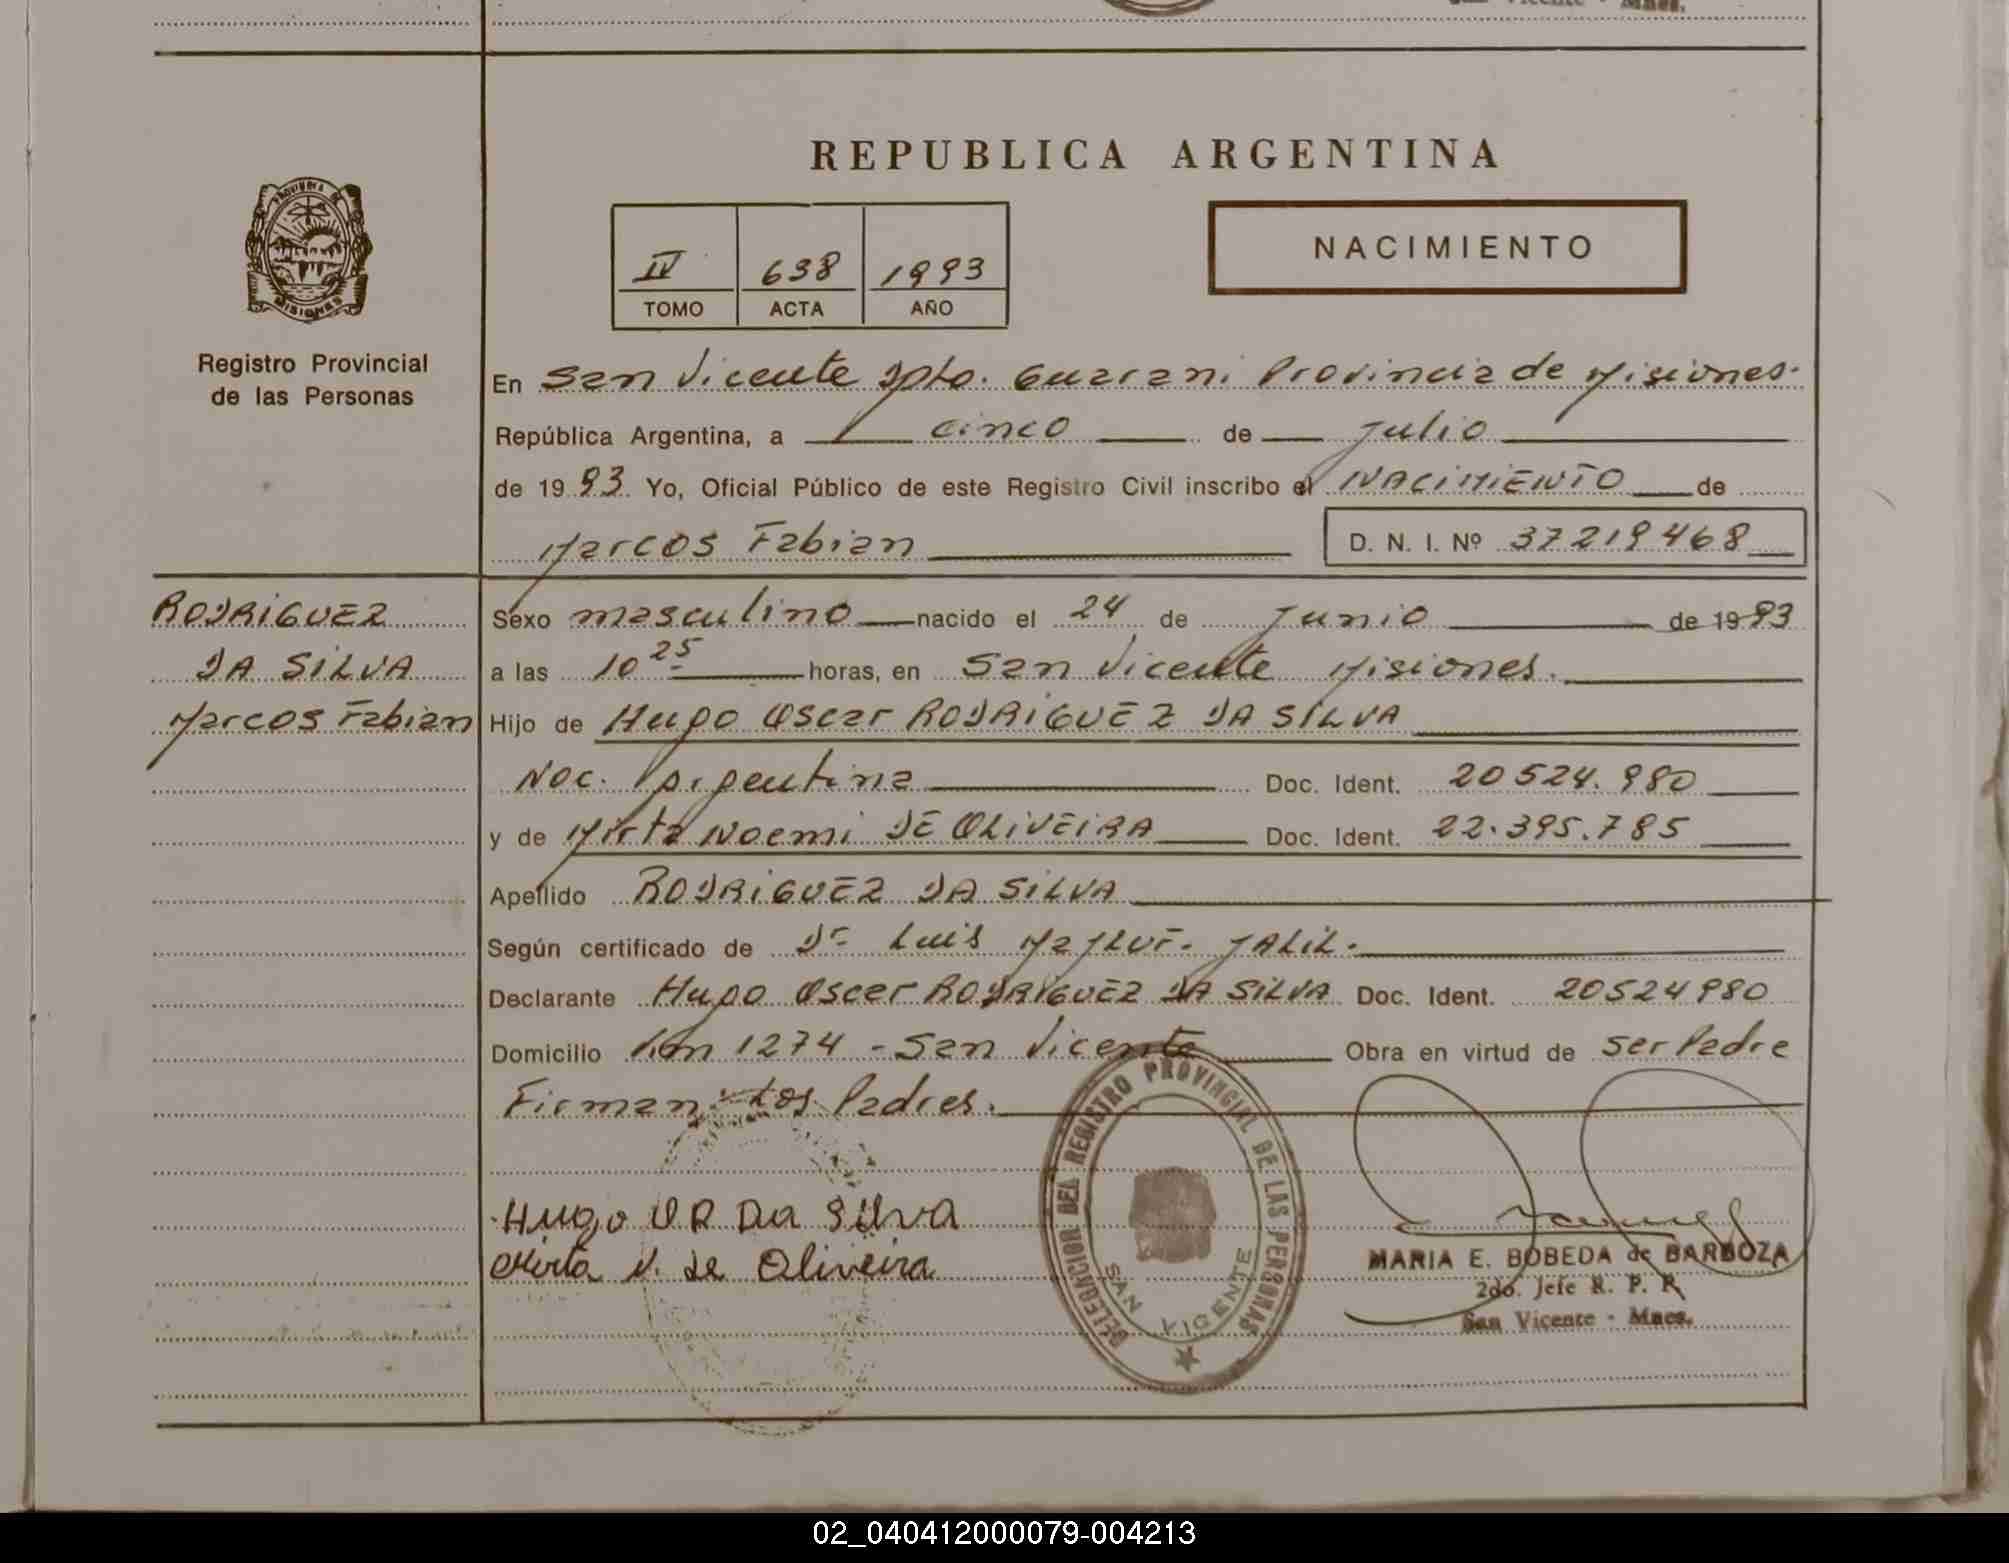 San Vicente - Mnes.
REPUBLICA ARGENTINA
NACIMIENTO
IV 638 1993
TOMO ACTA AÑO
Registro Provincial
de las Personas
En San Vicente Dpto. Guarani Provincia de Misiones.
República Argentina, a cinco de julio
de 1993. Yo, Oficial Público de este Registro Civil inscribo el NACIMIENTO de
Marcos Fabian D. N. I. Nº 37219468
RODRIGUEZ
DA SILVA
Marcos Fabian
Sexo masculino nacido el 24 de Junio de 1993
a las 10 25 horas, en San Vicente Misiones.
Hijo de Hugo Oscar RODRIGUEZ DA SILVA
Nac. Argentina Doc. Ident. 20524.980
y de Mirta Noemi DE OLIVEIRA Doc. Ident. 22.395.785
Apellido RODRIGUEZ DA SILVA
Según certificado de Dr. Luis JALIL.
Declarante Hugo Oscar RODRIGUEZ DA SILVA Doc. Ident. 20524980
Domicilio Km 1274 - San Vicente Obra en virtud de ser Padre
Firman Los Padres.
Hugo O R Da Silva
Mirta N. de Oliveira
DELEGACION DEL REGISTRO PROVINCIAL DE LAS PERSONAS
SAN VICENTE
MARIA E. BOBEDA de BARBOZA
2do. Jefe R. P. P.
San Vicente - Mnes.
PROVINCIA DE
MISIONES
02_040412000079-004213